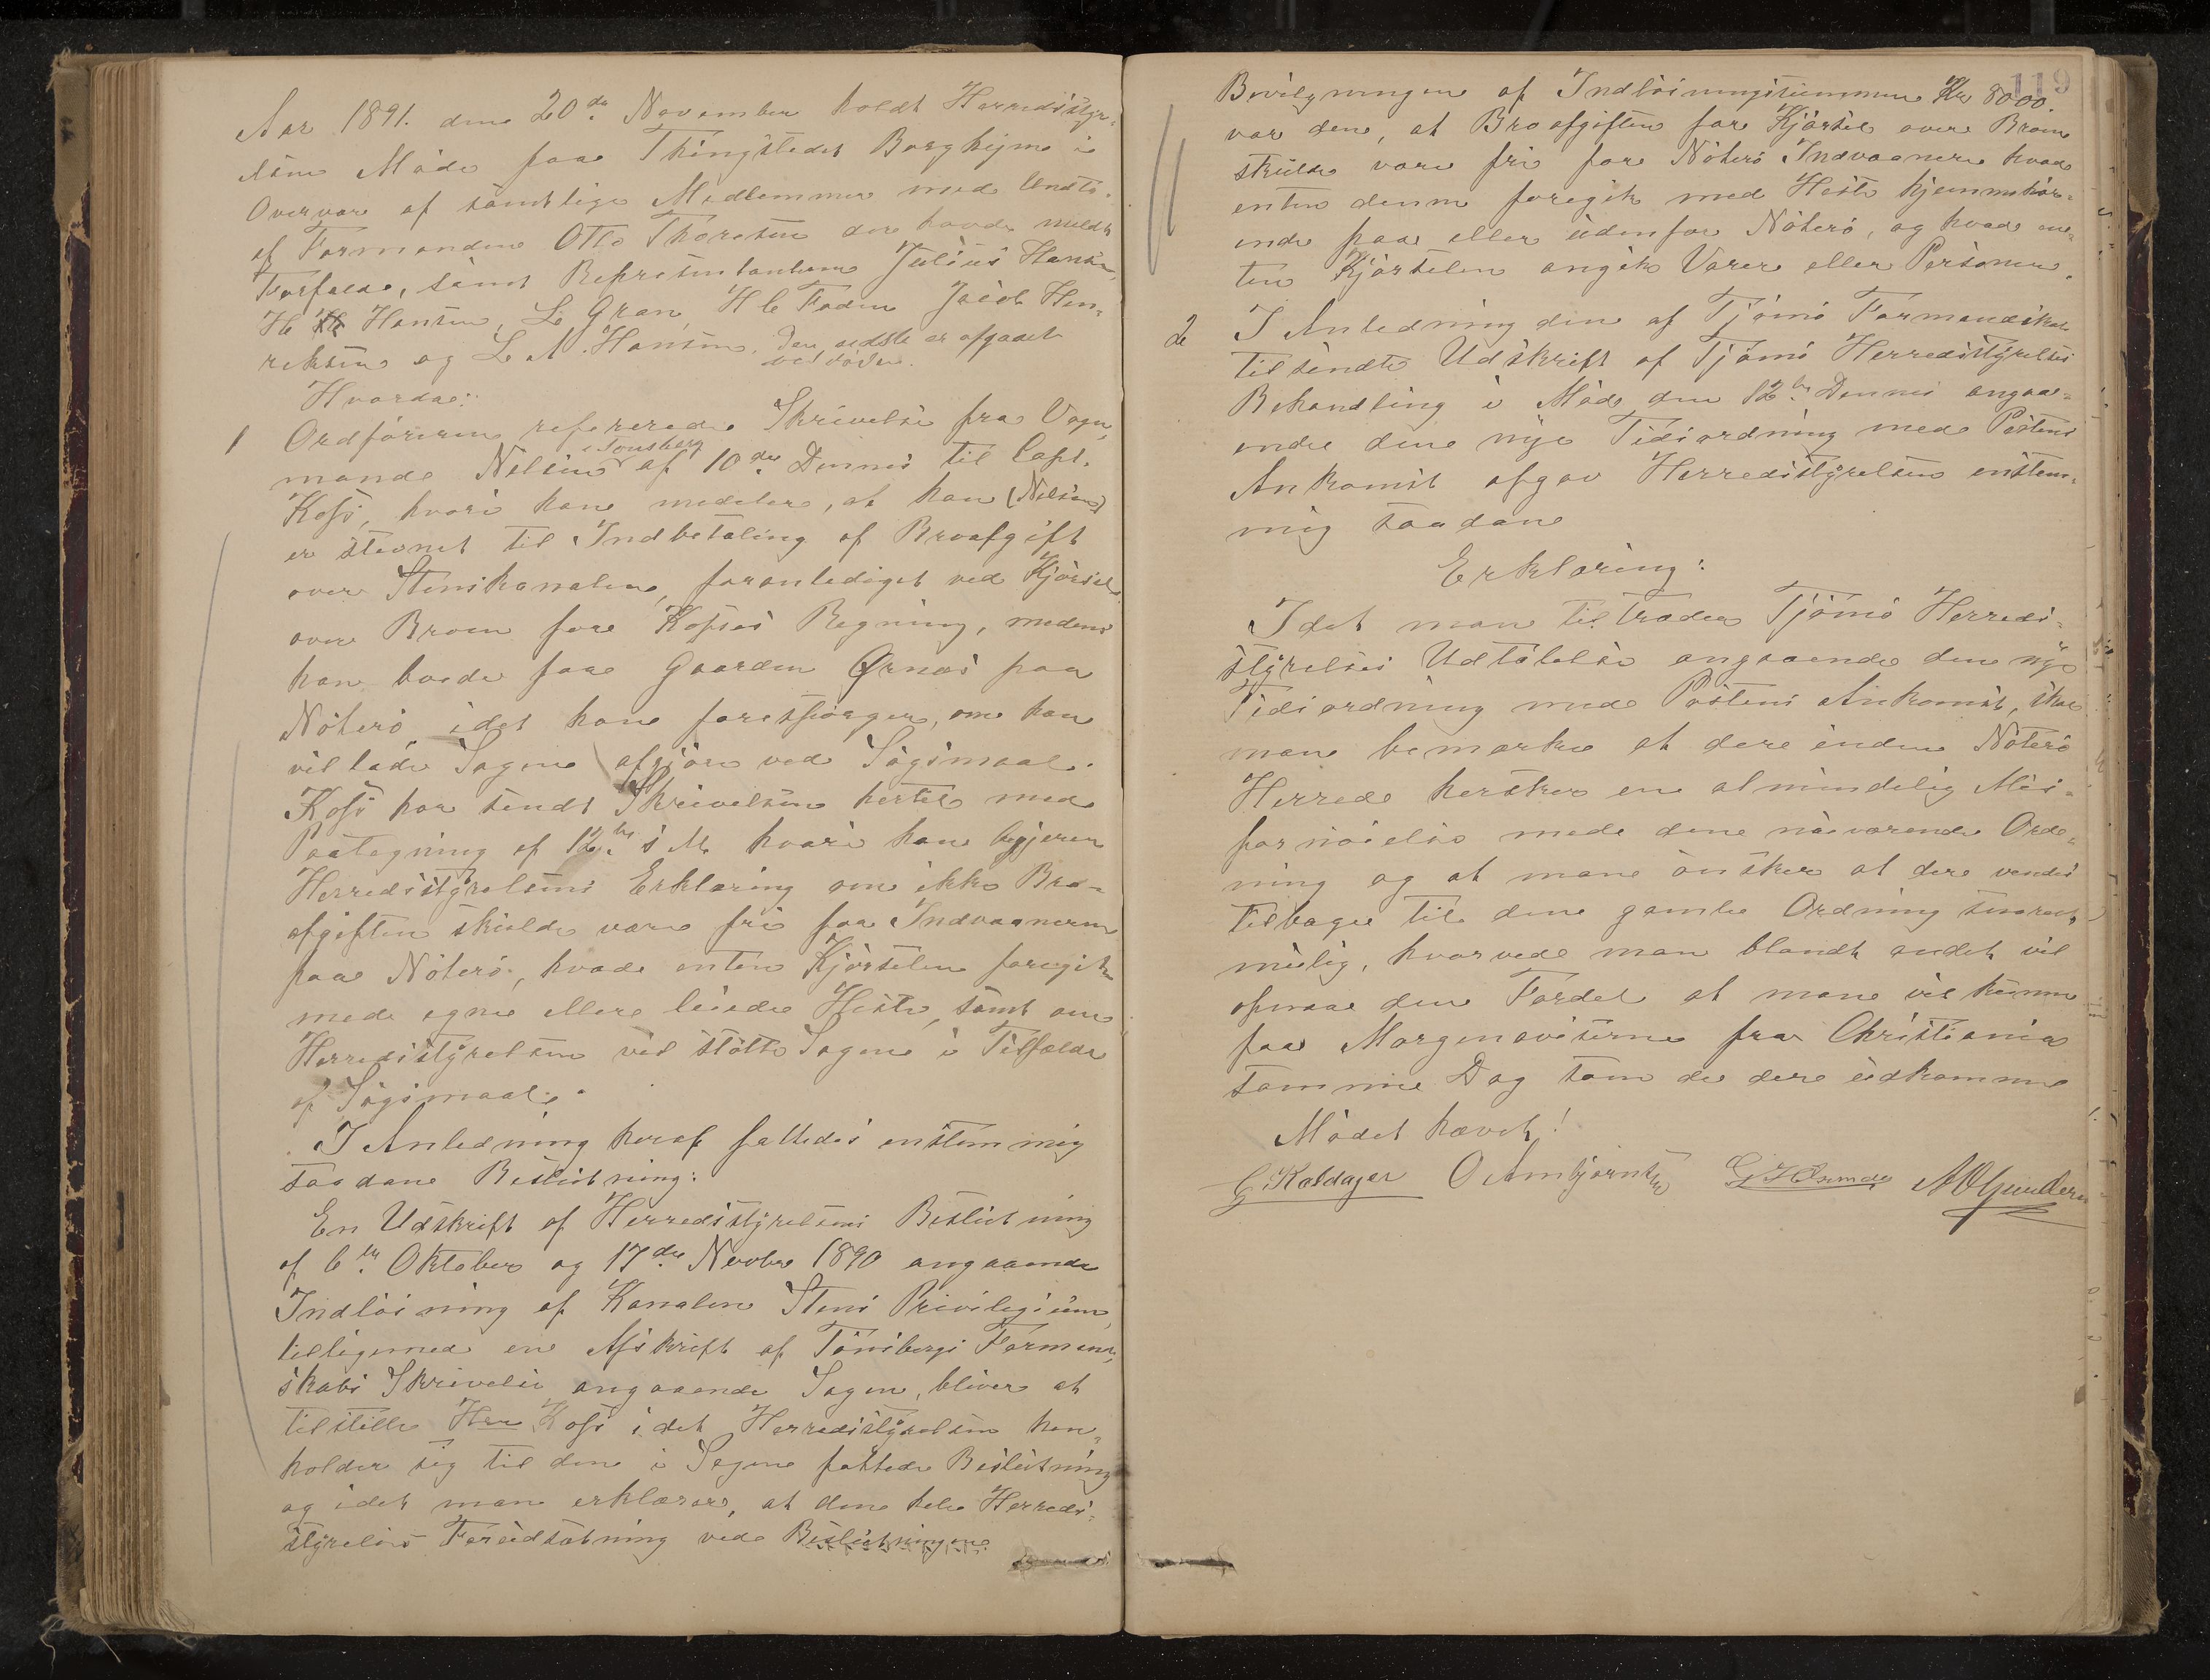 Aar 1891. den 20de November holdt Herredsstyr-
elsen Möde paa Thingstedet Borgheim i
Overvær af samtlige Medlemmer med Undt.
af Formanden Otto Thoresen der havde meldt
Forfald, samt Repræsentanterne Julius Hansen,
H Hansen, L. Gran, H C Foden Jacob Hen-
riksen og L. M. Hansen. Den sidste er afgaaet
ved døden.
Hvorda:
1 Ordföreren refererede Skrivelse fra Vogn-
i Tønsberg
mand Nelsen af 10de Dennes til Capt.
Kofs, hvori han meddeler, at han (Nelsen)
er stevnet til Indbetaling af Broafgift
over Stenskanalen, foranlediget ved Kjörsel
over Broen for Kofses Regning, medens
han boede paa Gaarden Ørnæs paa
Nöterö, idet han forespörger, om han
vil lade Sagen afgjöre ved Sögsmaal.
Kofs har sendt Skrivelsen hertil med
Paategning af 12te s. M. hvori han begjerer
Herredsstyrelsens Erklæring om ikke Bro-
afgiften skulde være fri for Indvaanerne
paa Nöterö, hvad enten Kjörselen foregik
med egne eller leiede Heste, samt om
Herredsstyrelsen vil stötte Sagen i Tilfælde
af Sögsmaal.
I Anledning heraf fattedes enstemmig
saadan Beslutning:
En Udskrift af Herredsstyrelsens Beslutning
af 6te Oktober og 17de Novbr 1890 angaaende
Indlösning af Kanalen Stens Privilegium,
tilligemed en Afskrift af Tönsbergs Formand-
skabs Skrivelse angaaende Sagen, bliver at
tilstille Herr Kofs idet Herredsstyrelsen hen-
holder sig til den i Sagen fattede Beslutning
og idet man erklærer, at den hele Herreds-
styrelses Forudsætning ved Beslutningen
119
Bevilgningen af Indlösningssummen Kr 8000.
var den, at Broafgiften for Kjörsel over Broen
skulde være fri for Nöterö Indvaanere hvad
enten denne foregik med Heste hjemmehör-
ende paa eller udenfor Nöterö, og hvad en-
ten Kjörselen angik Varer eller Personer.
2 I Anledning den af Tjömö Formandskab
tilsendte Udskrift af Tjömö Herredsstyrelses
Behandling i Möde den 12te Dennes angaa-
ende den nye Tidsordning med Postens
Ankomst afgav Herredsstyrelsen enstem-
mig saadan
Erklæring:
Idet man tiltræder Tjömö Herreds-
styrelses Udtalelse angaaende den nye
Tidsordning med Postens Ankomst, skal
man bemærke at der inden Nöterö
Herred hersker en almindelig Mis-
fornöielse med den nuværende Ord-
ning og at man önsker at der vendes
tilbage til den gamle Ordning snarest
mulig, hvorved man blandt andet vil
opnaa den Fordel at man vil kunne
faa Morgenaviserne fra Christiania
samme Dag som de der udkomme
Mödet hævet!
G Kaldager O Ambjørnsen